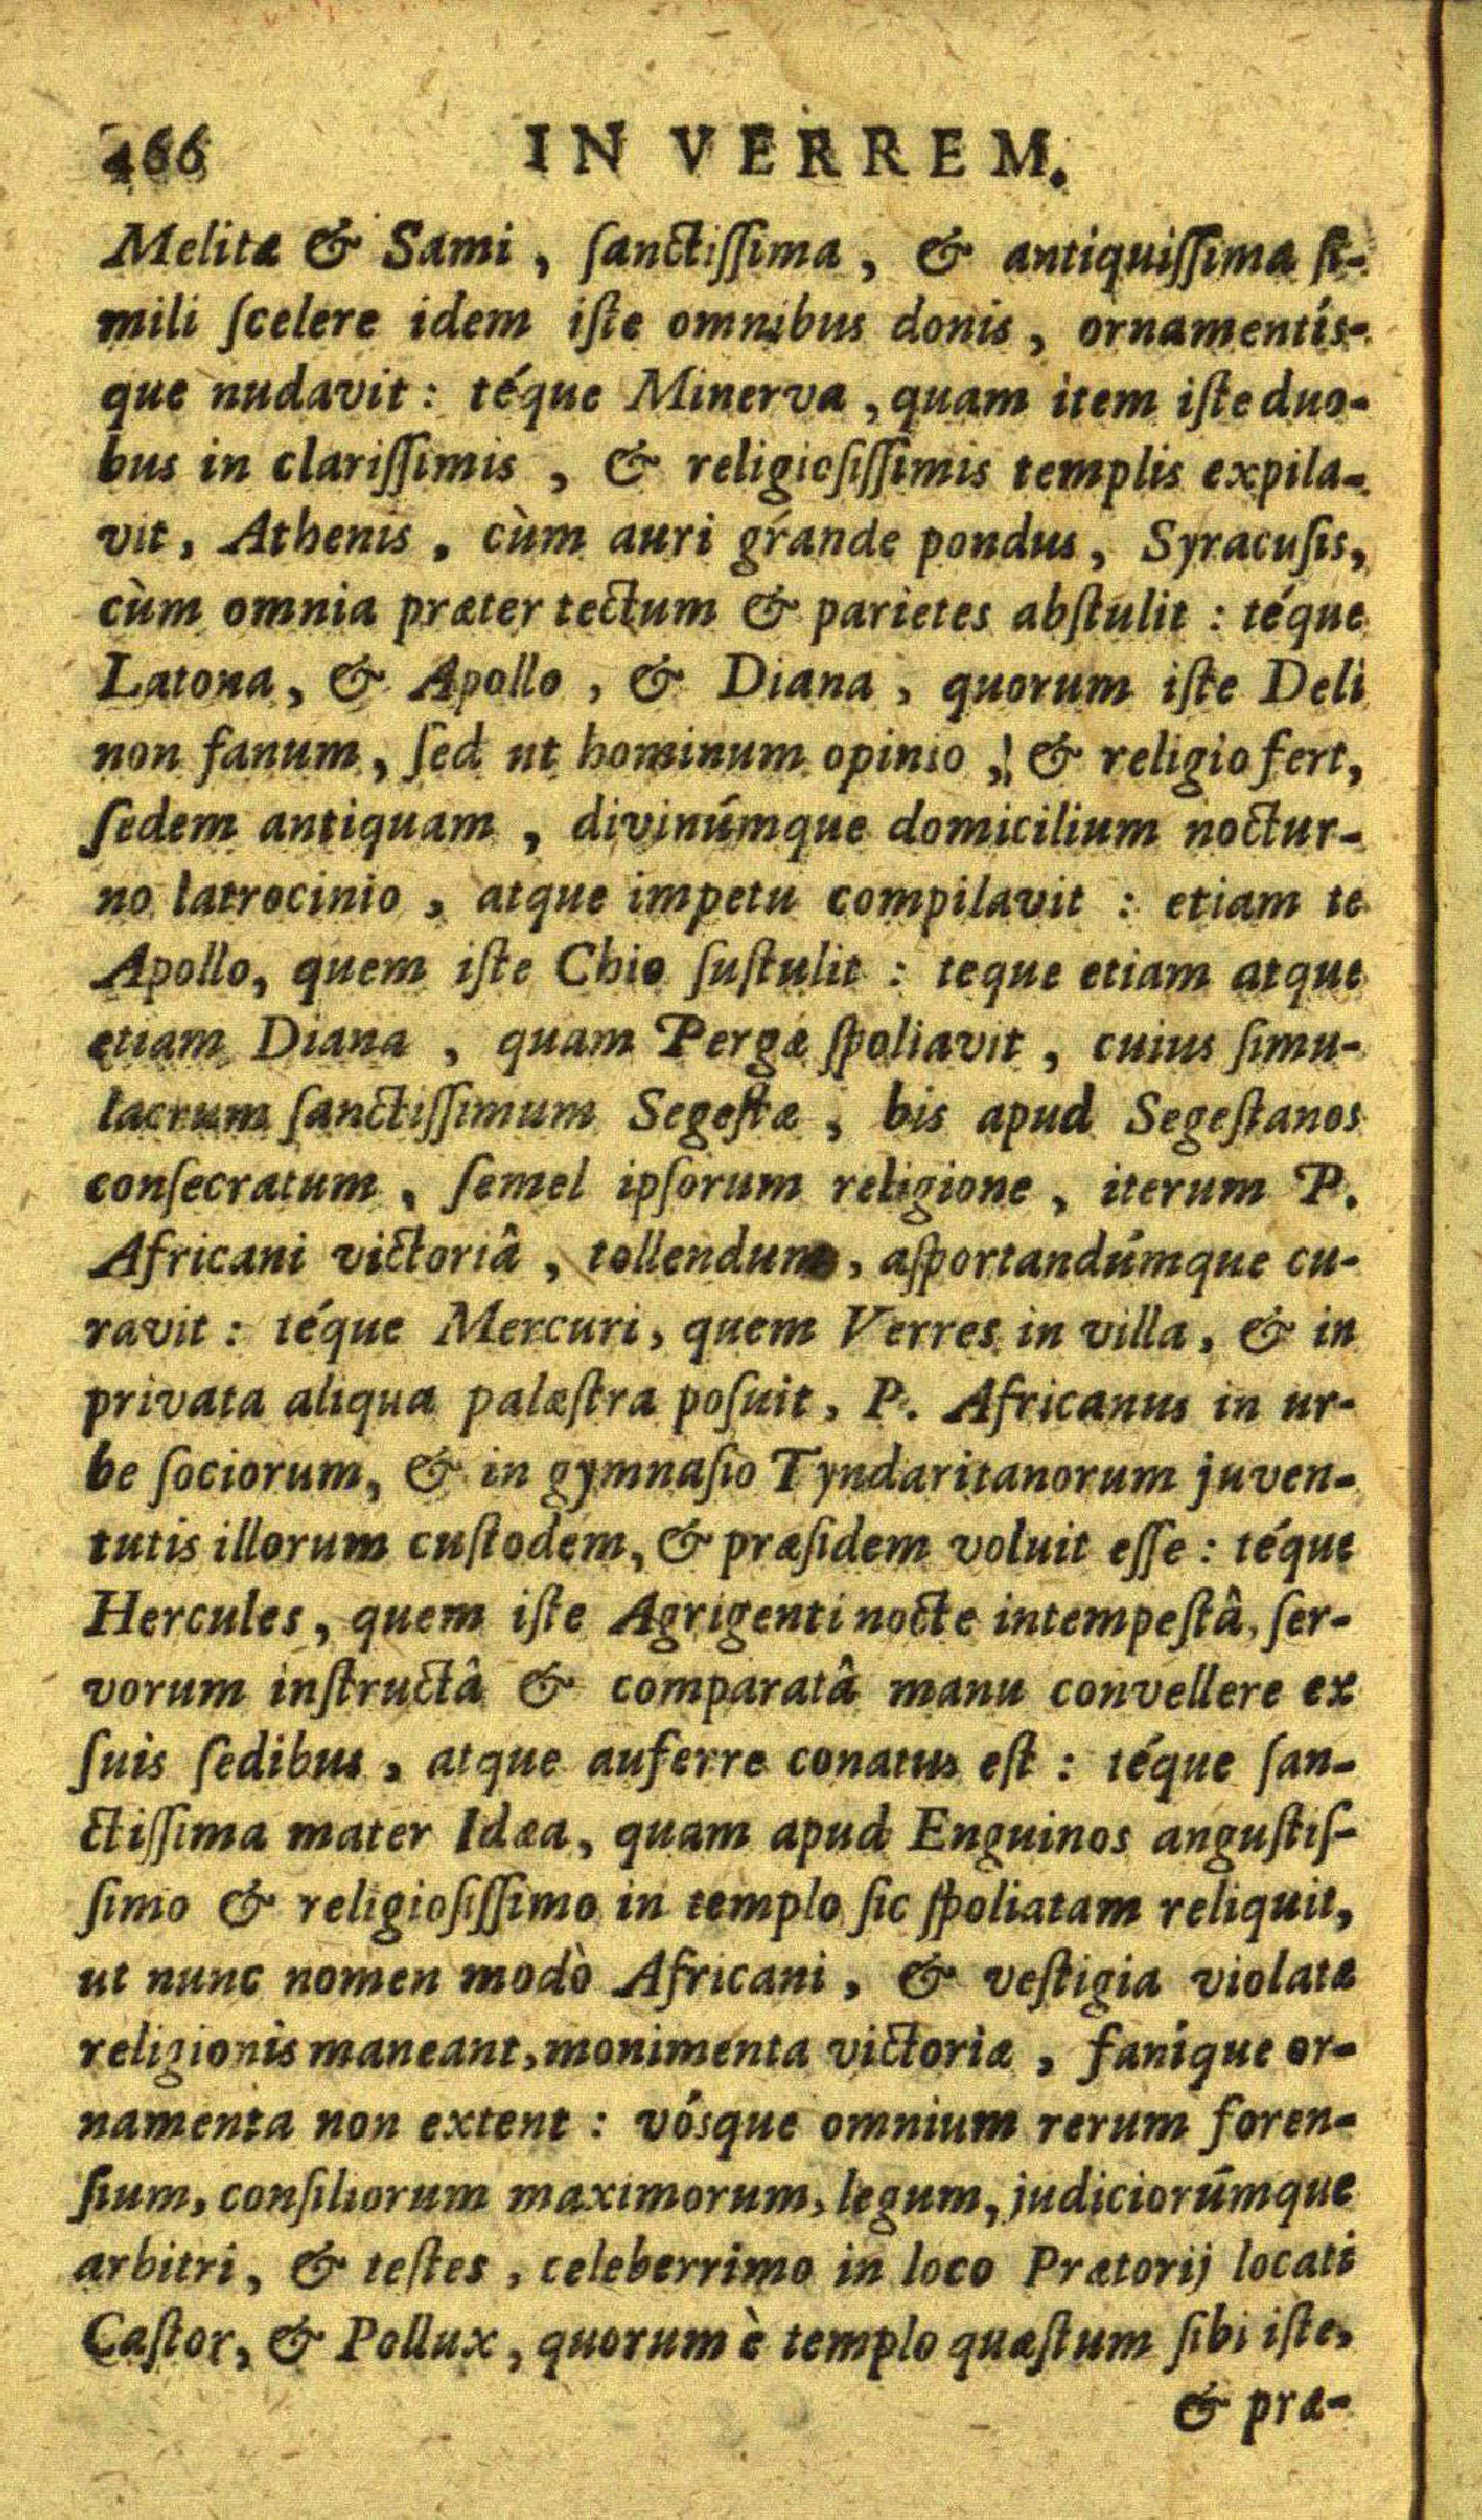 466 IN VERREM.
Melitæ & Sami, ſanctiſſima, & antiquiſſima ſi-
mili ſcelere idem iſte omnibus donis, ornamentís-
que nudavit: téque Minerva, quam item iſte duo-
bus in clariſſimis, & religioſiſſimis templis expila-
vit, Athenis, cùm auri grande pondus, Syracuſis,
cùm omnia præter tectum & parietes abſtulit: téque
Latona, & Apollo, & Diana, quorum iſte Deli
non fanum, ſed ut hominum opinio, & religio fert,
ſedem antiquam, divinúmque domicilium noctur-
no latrocinio, atque impetu compilavit: etiam te
Apollo, quem iſte Chio ſuſtulit: teque etiam atque
etiam Diana, quam Pergæ ſpoliavit, cuius ſimu-
lacrum ſanctiſſimum Segeſtæ, bis apud Segeſtanos
conſecratum, ſemel ipſorum religione, iterum P.
Africani victoriâ, tollendum, aſportandúmque cu-
ravit: téque Mercuri, quem Verres in villa, & in
privata aliqua palæſtra poſuit, P. Africanus in ur-
be ſociorum, & in gymnaſio Tyndaritanorum juven-
tutis illorum cuſtodem, & præſidem voluit eſſe: téque
Hercules, quem iſte Agrigenti nocte intempeſtâ, ſer-
vorum inſtructâ & comparatâ manu convellere ex
ſuis ſedibus, atque auferre conatus eſt: téque ſan-
ctiſſima mater Idæa, quam apud Enguinos anguſtiſ-
ſimo & religioſiſſimo in templo ſic ſpoliatam reliquit,
ut nunc nomen modò Africani, & veſtigia violatæ
religionis maneant, monimenta victoriæ, fanique or-
namenta non extent: vósque omnium rerum foren-
ſium, conſiliorum maximorum, legum, judiciorúmque
arbitri, & teſtes, celeberrimo in loco Prætorij locati
Caſtor, & Pollux, quorum è templo quæſtum ſibi iſte,
& præ-